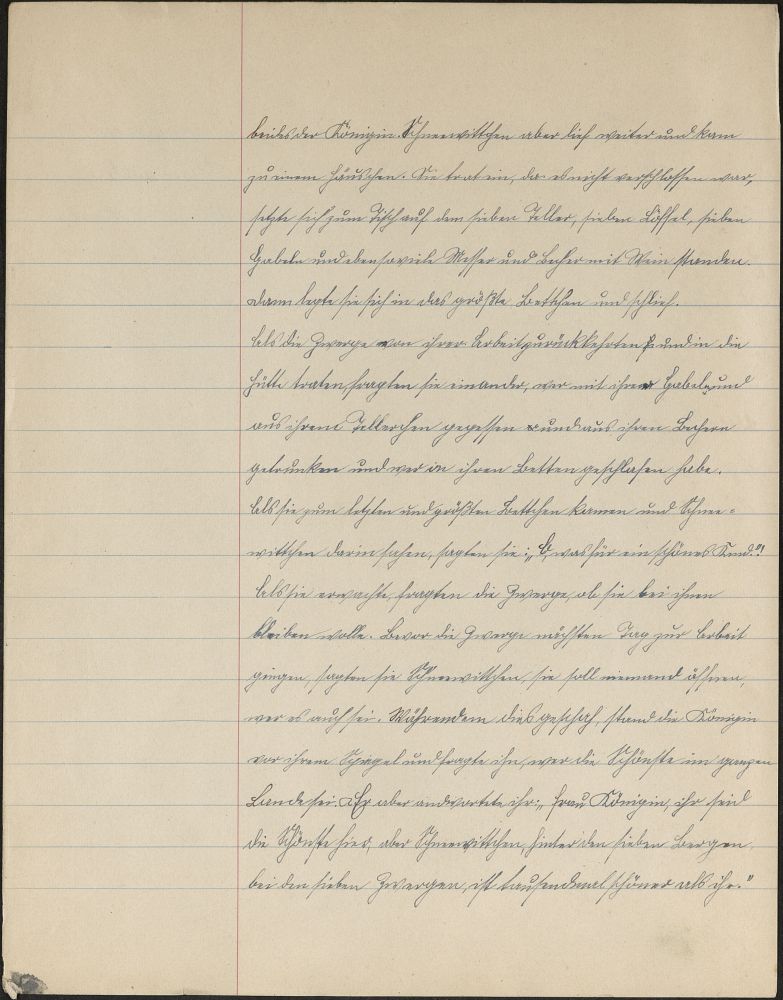 beides der Königin. Schneewittchen aber lief weiter und kam
zu einem Häuschen. Sie trat ein, da es nicht verschlossen war,
setzte sich zum Tisch auf dem sieben Teller, sieben Löffel, sieben
Gabeln und ebensoviele Messer und Becher mit Wein standen.
Dann legte sie sich in das größte Bettchen und schlief.
Als die Zwerge von ihrer Arbeit zurückkehrten und in die
Hütte traten, fragten sie einander, wer mit ihren Gabeln und
aus ihrem Tellerchen gegessen und aus ihren Bechern
getrunken und wer in ihren Betten geschlafen habe.
Als sie zum letzten und größten Bettchen kamen und Schnee=
wittchen darin sahen, sagten sie: „O, was für ein schönes Kind."!
Als sie erwachte, fragten die Zwerge, ob sie bei ihnen
bleiben wolle. Bevor die Zwerge nächsten Tag zur Arbeit
gingen, sagten sie Schneewittchen, sie soll niemand öffnen,
wer es auch sei. Währendem dies geschah, stand die Königin
vor ihrem Spiegel und fragte ihn, wer die Schönste im ganzen
Lande sei. Er aber andwortete ihr: „Frau Königin, ihr seid
die Schönste hier, aber Schneewittchen, hinter den sieben Bergen,
bei den sieben Zwergen, ist tausendmal schöner als ihr."